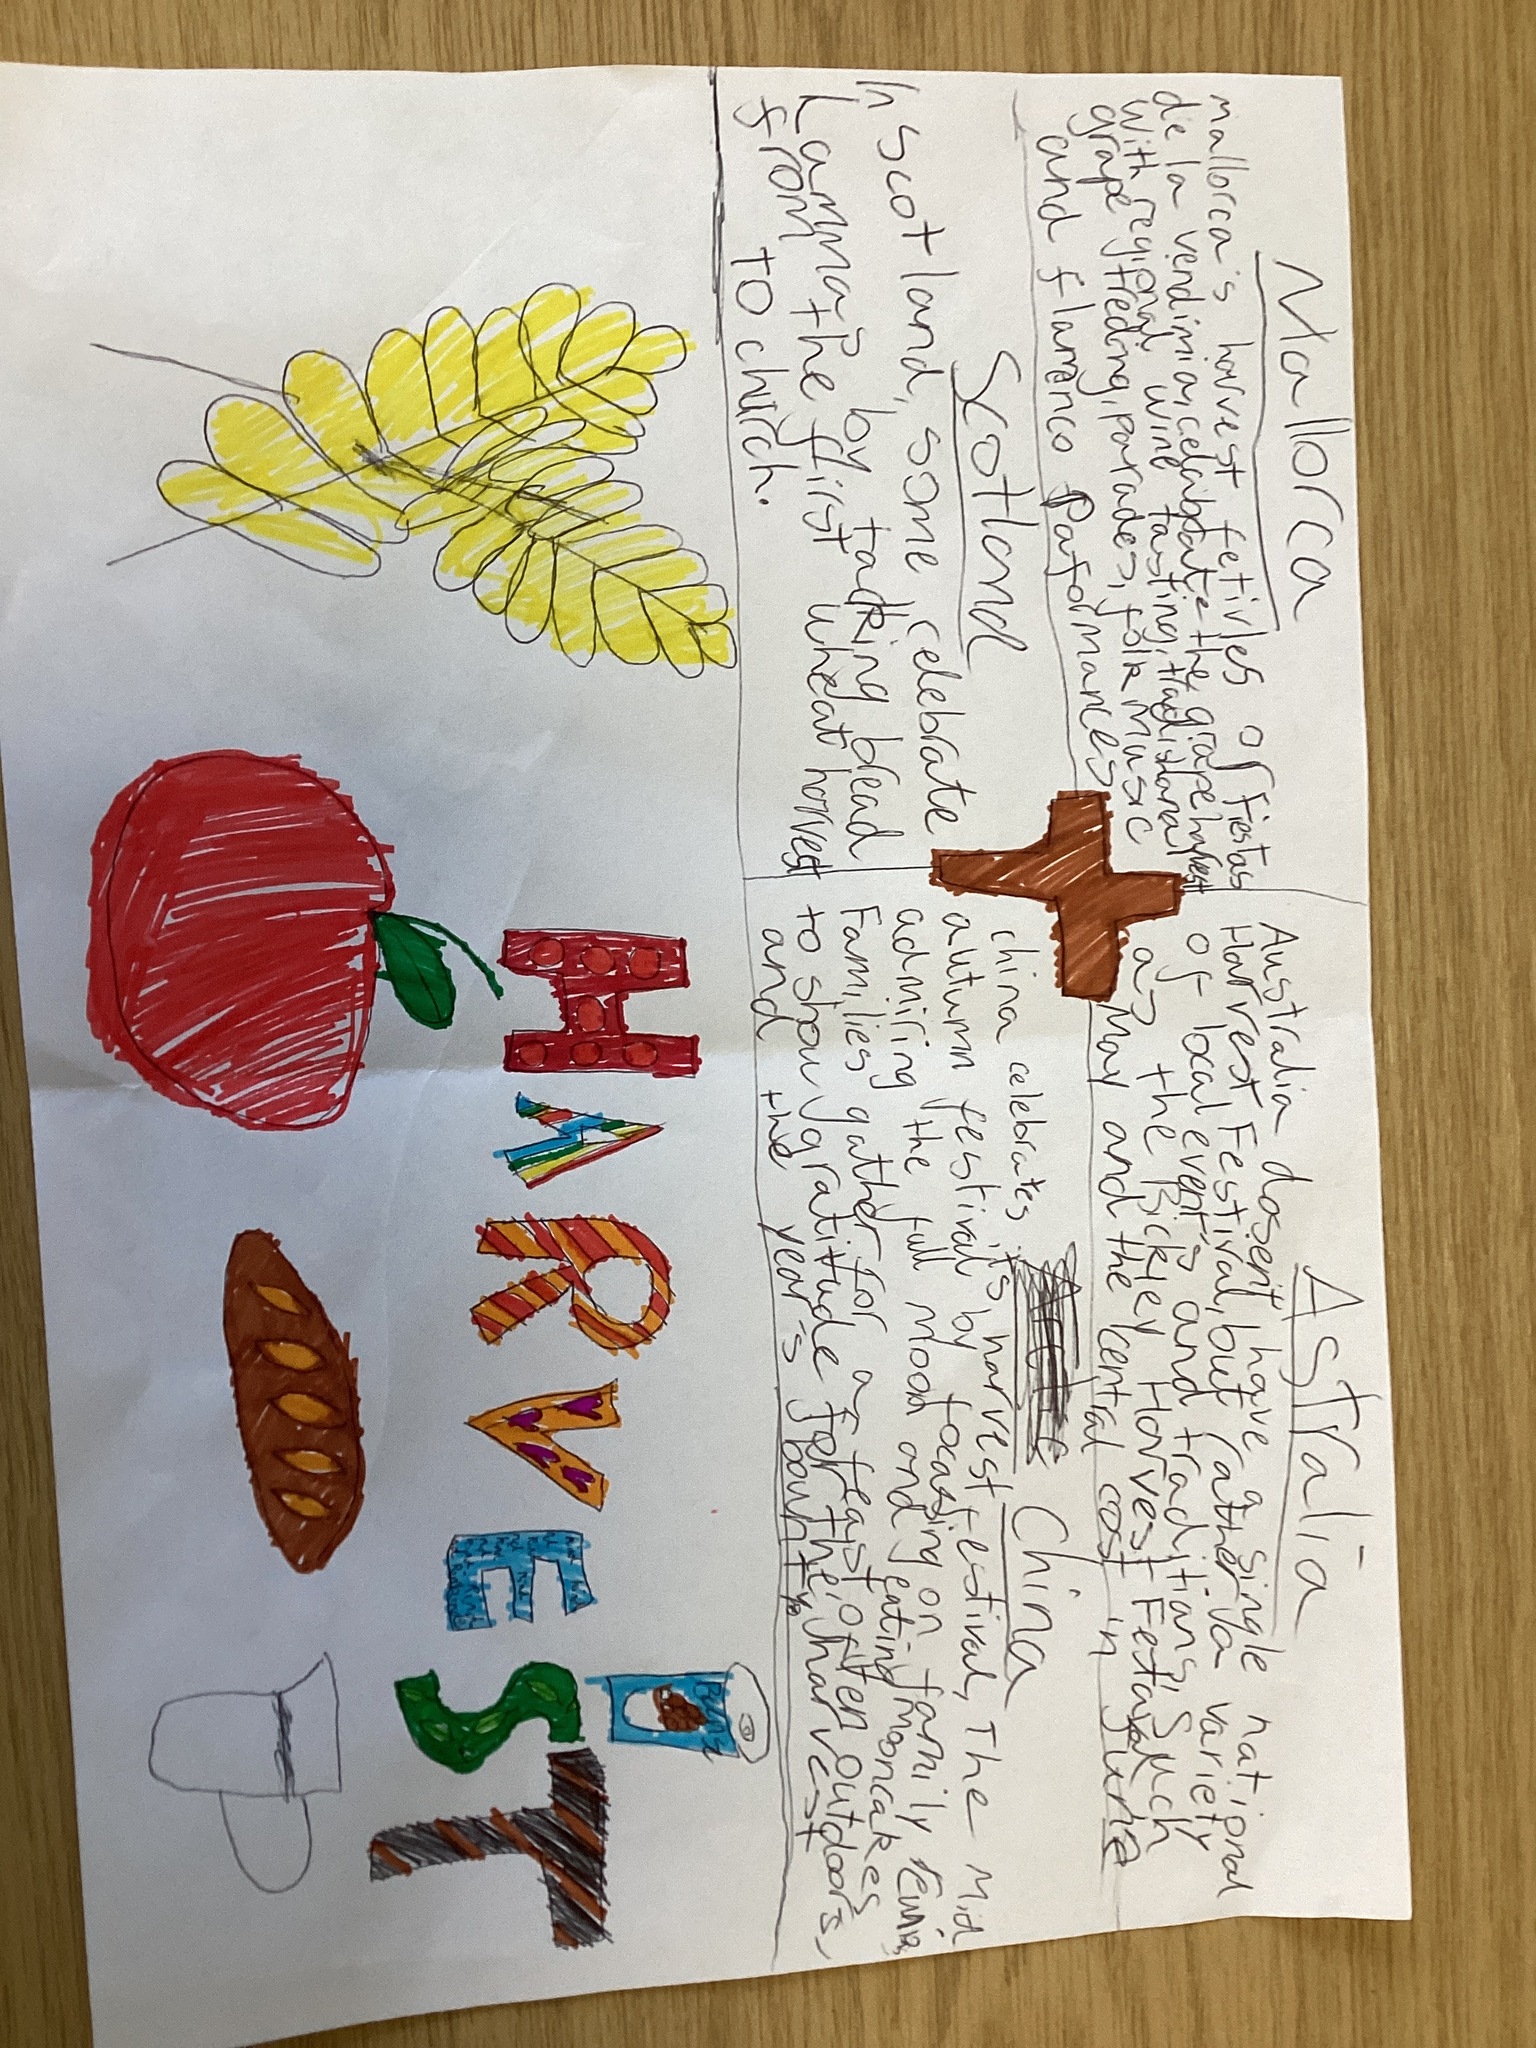 Mallorca
mallorca's harvest fetivles or Fiestas
de la vendimia, celabbate the grape harvest
with regional wine tasting, traditharal
grape treding, parades, folk music
and flamenco Paformances
Astralia
Australia dosent have a single national
Harvest Festival, but rather va variety
of local event's and traditians, Such
as the Bickley Harvest Festaval
May and the central cost in June
Scotland
In scotland, some celebrate
Lammas by tacking bread
from the first wheat harvest
TO church.
China
china celebrates its harvest festival, The Mid
autumn festival by focasing on family
admiring the full moon and eating mooncakes
Families gather for a feast often outdoors,
to show gratitude for the harvest
and the year's bounty.
HARVEST